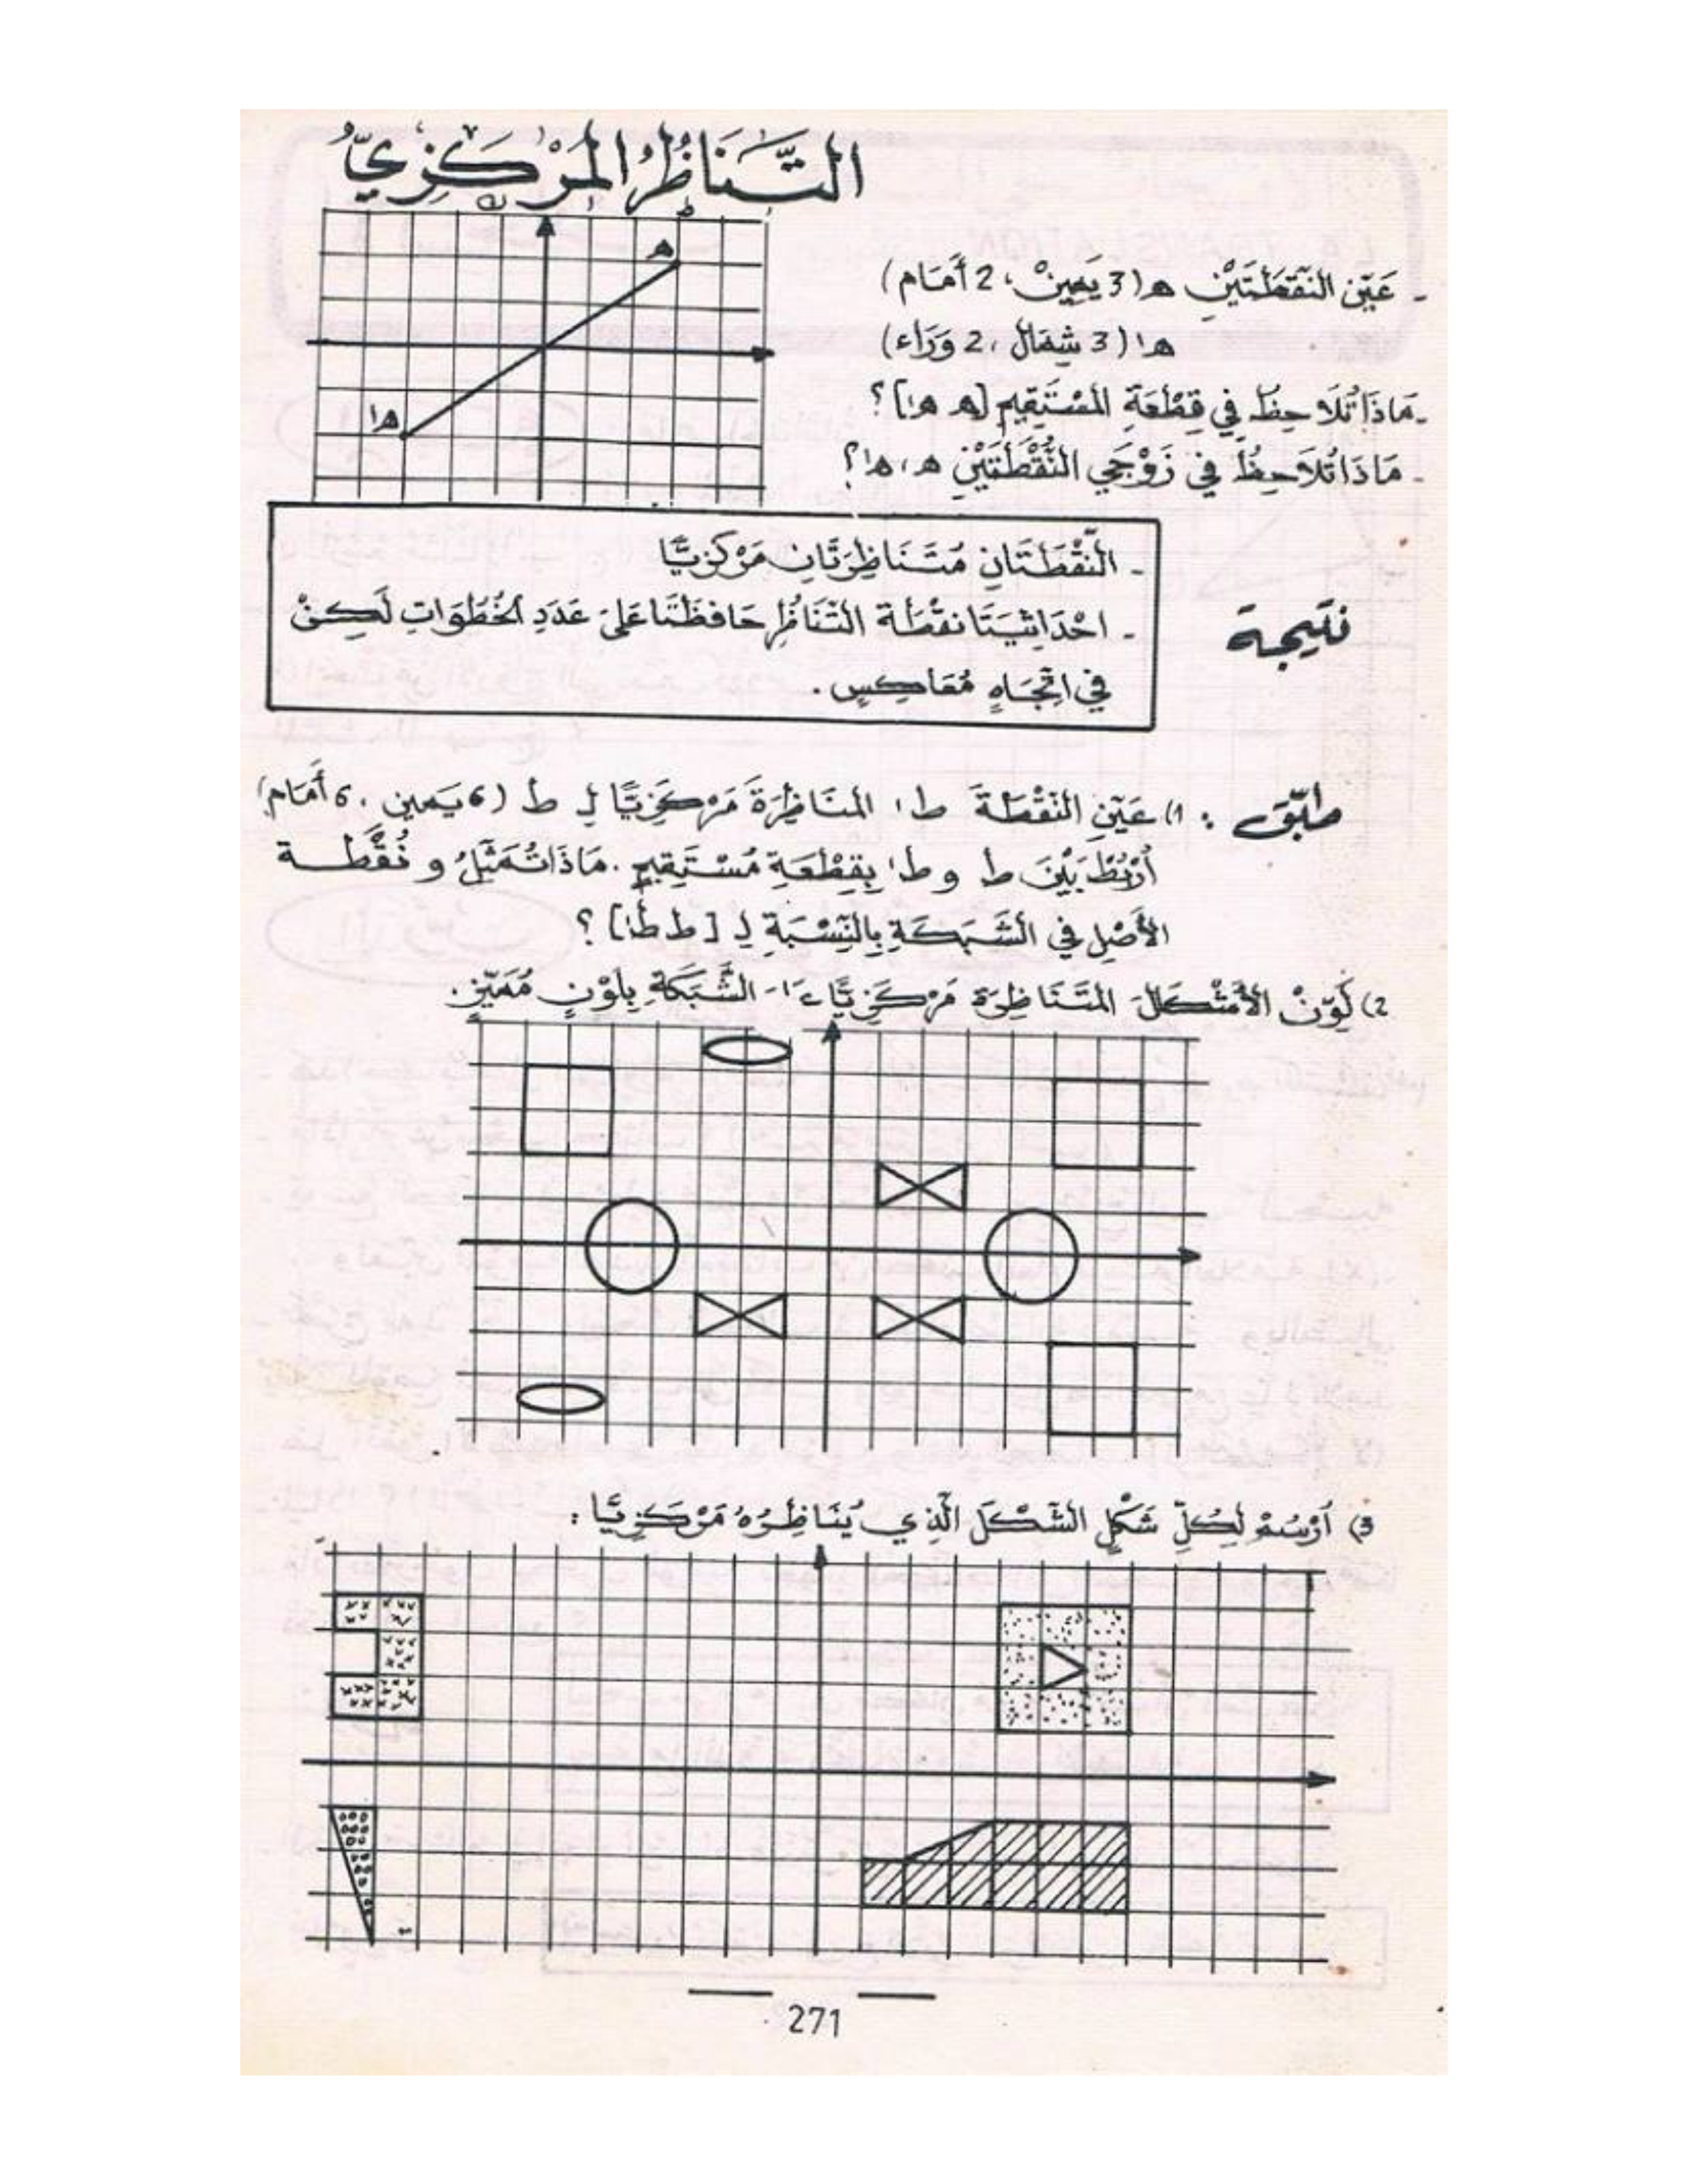 التَّنَاظُرُ المَرْكَزِيُّ
- عَيِّنِ النُّقْطَتَيْنِ ه (3 يَمِينْ، 2 أَمَام)
ه' (3 شِمَال، 2 وَرَاء)
- مَاذَا تُلَاحِظُ فِي قِطْعَةِ المُسْتَقِيمِ [ه ه']؟
- مَاذَا تُلَاحِظُ فِي زَوْجَيِ النُّقْطَتَيْنِ ه، ه'؟
ه
ه'
نَتِيجة
- النُّقْطَتَانِ مُتَنَاظِرَتَانِ مَرْكَزِيًّا
- احْدَاثِيَتَا نقْطَة التَّنَاظُرِ حَافَظَتَا عَلَى عَدَدِ الخُطُوَاتِ لَكِنْ
فِي اتِّجَاهٍ مُعَاكِسٍ.
طبّق : 1) عَيِّنِ النّقْطَةَ ط' المنَاظِرَةَ مَرْكَزِيًّا لِ ط (6 يَمين، 6 أَمَام)
أرْبُطْ بَيْنَ ط و ط' بِقِطْعَةِ مُسْتَقِيمٍ. مَاذَا تُمَثِّلُ و نُقْطة
الأَصْلِ فِي الشَّبَكَةِ بِالنِّسْبَةِ لِ [ط ط']؟
2) لَوِّنْ الأَشْكَالَ المتَنَاظِرَة مَرْكَزِيًّا الشَّبَكَةِ بِلَوْنٍ مُمَيِّزٍ.
3) اُرْسُمْ لِكُلِّ شَكْلٍ الشَّكْلَ الَّذِي يُنَاظِرُهُ مَرْكَزِيًّا :
271